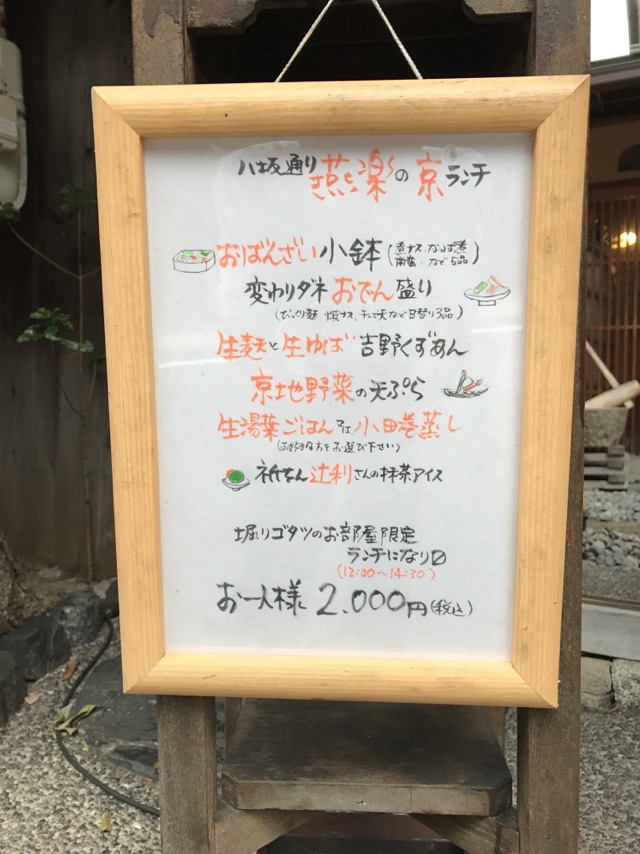 八坂通り 燕楽の京ランチ
おばんざい小鉢(煮ナス、なっぱ煮
南蛮、など5品)
変わりダネ おでん盛り
(びっくり麩 焼ナス、チーズ天など日替り3品)
生麩と生ゆば 吉野くずあん
京地野菜の天ぷら
生湯葉ごはん又は小田巻蒸し
(お好きな方をお選び下さい)
祇をん辻利さんの抹茶アイス
堀りゴタツのお部屋限定
ランチになり〼
(12:00~14:30)
お一人様 2.000円(税込)